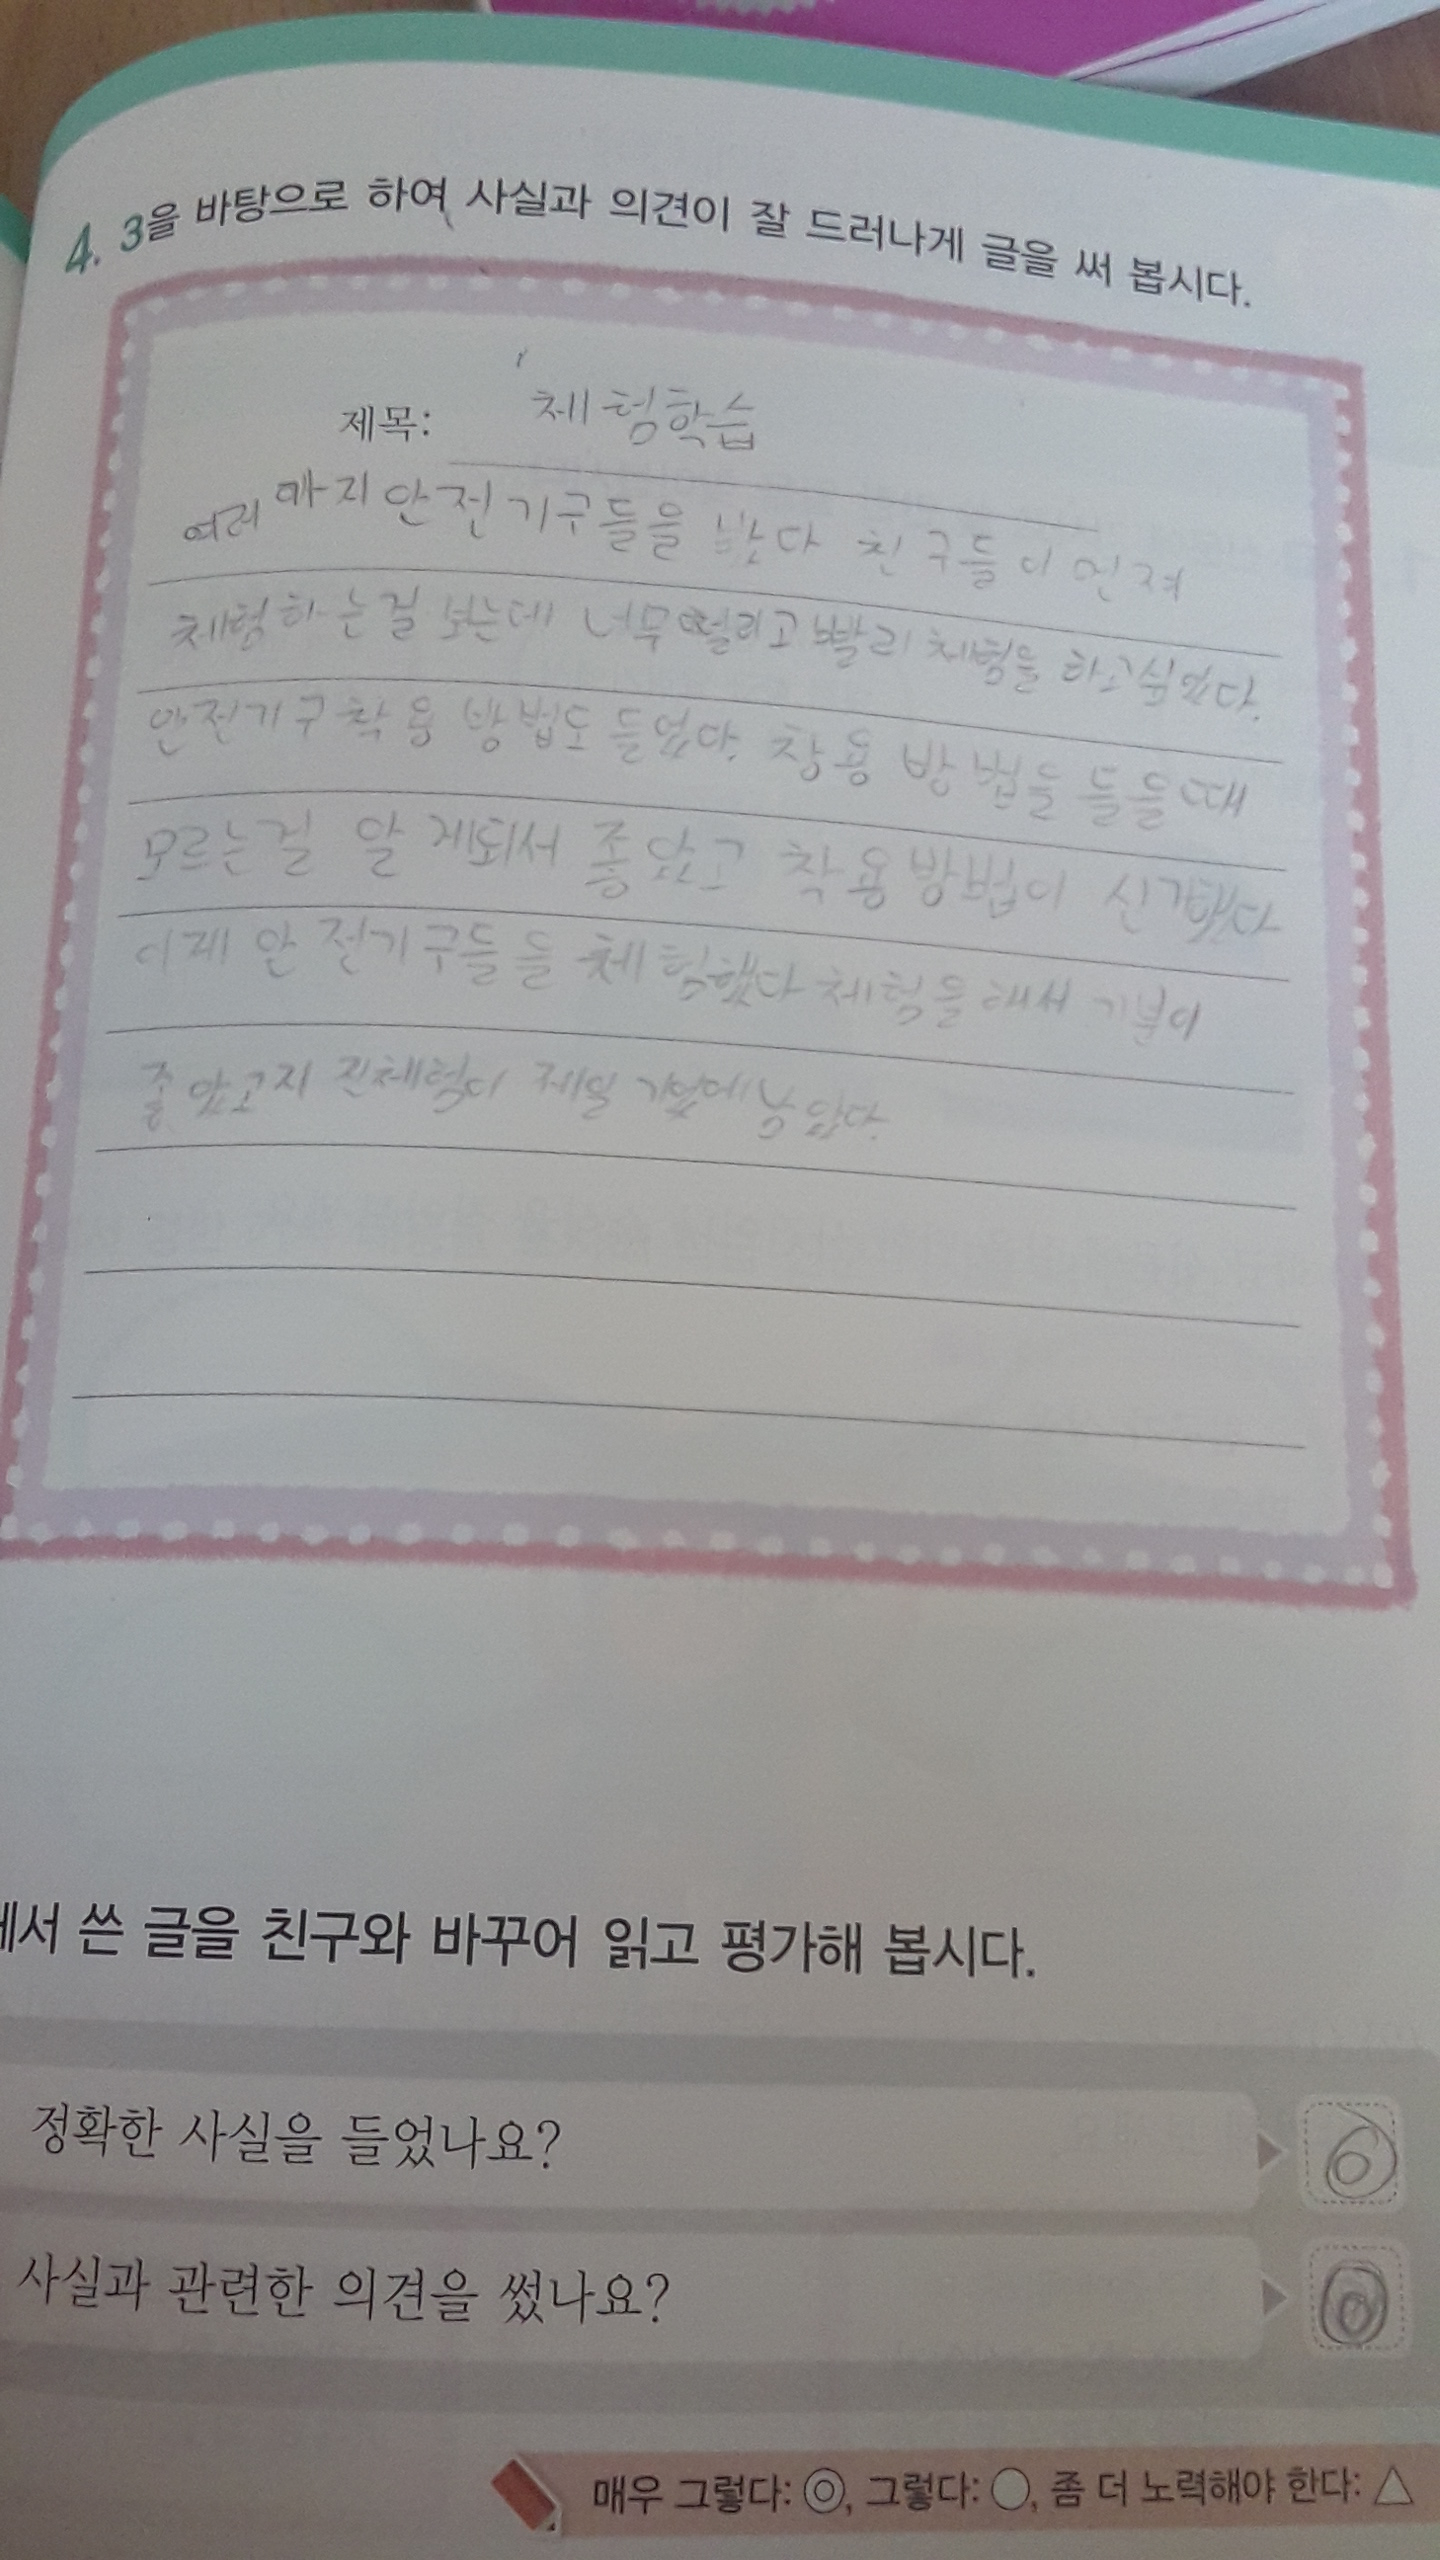 4. 3을 바탕으로 하여 사실과 의견이 잘 드러나게 글을 써 봅시다.
제목: 체험학습
여러 마지 안전기구들을 봤다 친구들이 먼저
체험하는걸 보는데 너무 떨리고 빨리 체험을 하고싶었다.
안전기구 착용 방법도 들었다. 착용 방법을 들을때
모르는걸 알게되서 좋았고 착용방법이 신기했다
이제 안전기구들을 체험했다 체험을해서 기분이
좋았고 지진체험이 제일 기억에 남았다.
에서 쓴 글을 친구와 바꾸어 읽고 평가해 봅시다.
정확한 사실을 들었나요? ◎
사실과 관련한 의견을 썼나요? ◎
매우 그렇다: ◎, 그렇다: ○, 좀 더 노력해야 한다: △